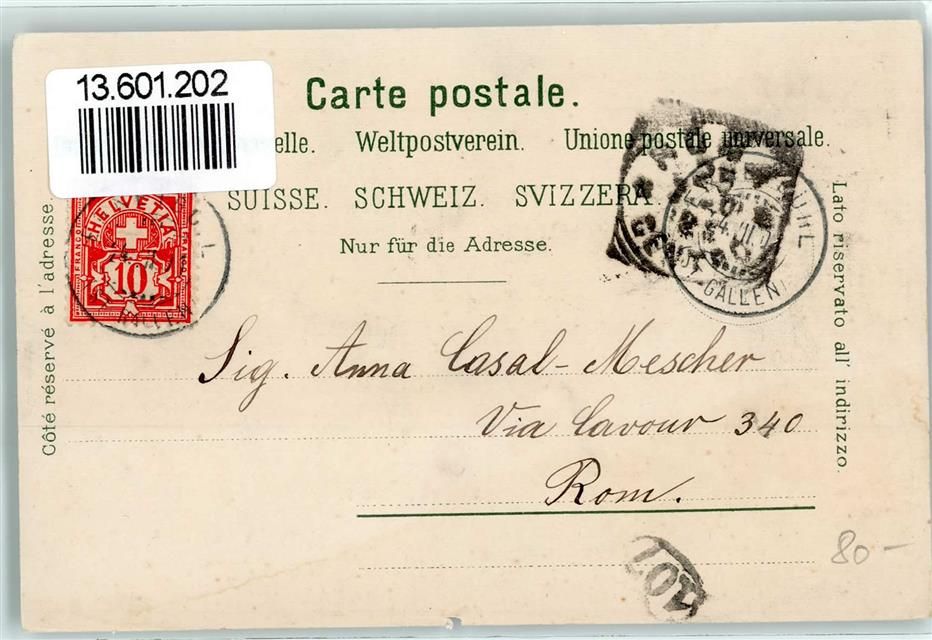 13.601.202
Carte postale.
elle. Weltpostverein. Unione postale universale.
SUISSE. SCHWEIZ. SVIZZERA.
Nur für die Adresse.
Côté réservé à l'adresse.
Lato riservato all' indirizzo.
HELVETIA
FRANCO
FRANCO
10
GALLEN
Sig. Anna Casal-Mescher
Via Cavour 340
Rom.
107
80-